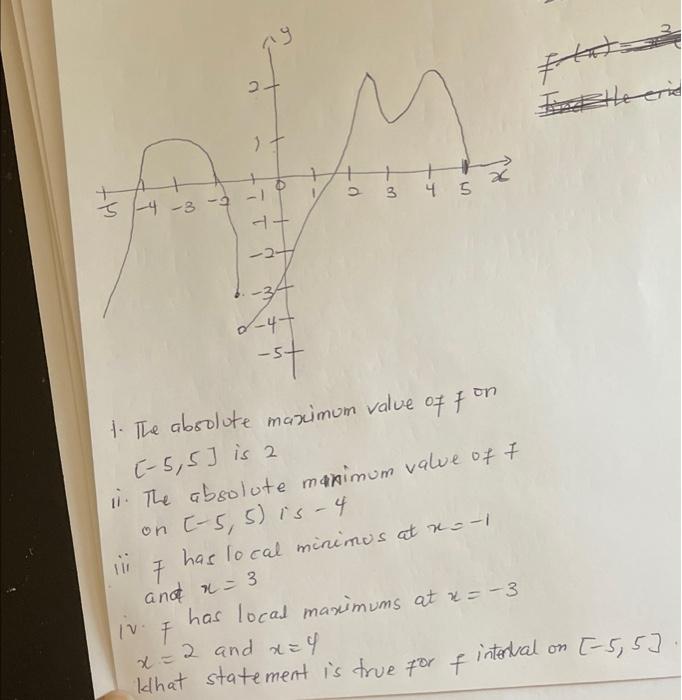 y
2
1
-5 -4 -3 -2 -1 0 1 2 3 4 5 x
-1
-2
-3
-4
-5
f(x) =
Find the
1. The absolute maximum value of f on
[-5,5] is 2
ii. The absolute manimum value of f
on [-5, 5) is -4
iii f has local minimus at x = -1
and x = 3
iv. f has local maximums at x = -3
x = 2 and x = 4
What statement is true for f interval on [-5, 5].